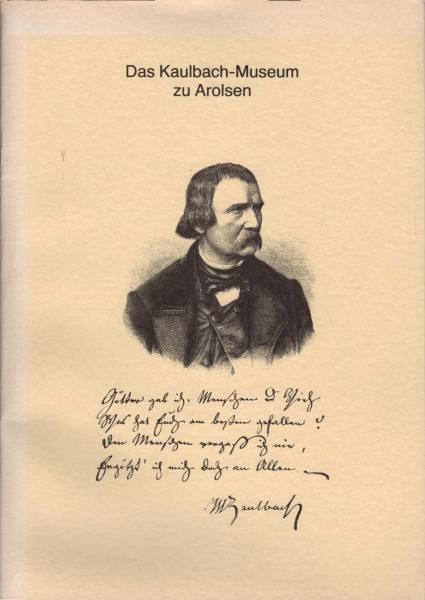 Das Kaulbach-Museum
zu Arolsen
Götter gab ich, Menschen u Vieh
Was hat Euch am besten gefallen?
Den Menschen vergaß ich nie,
Ergötzt' ich mich doch an Allen
WKaulbach